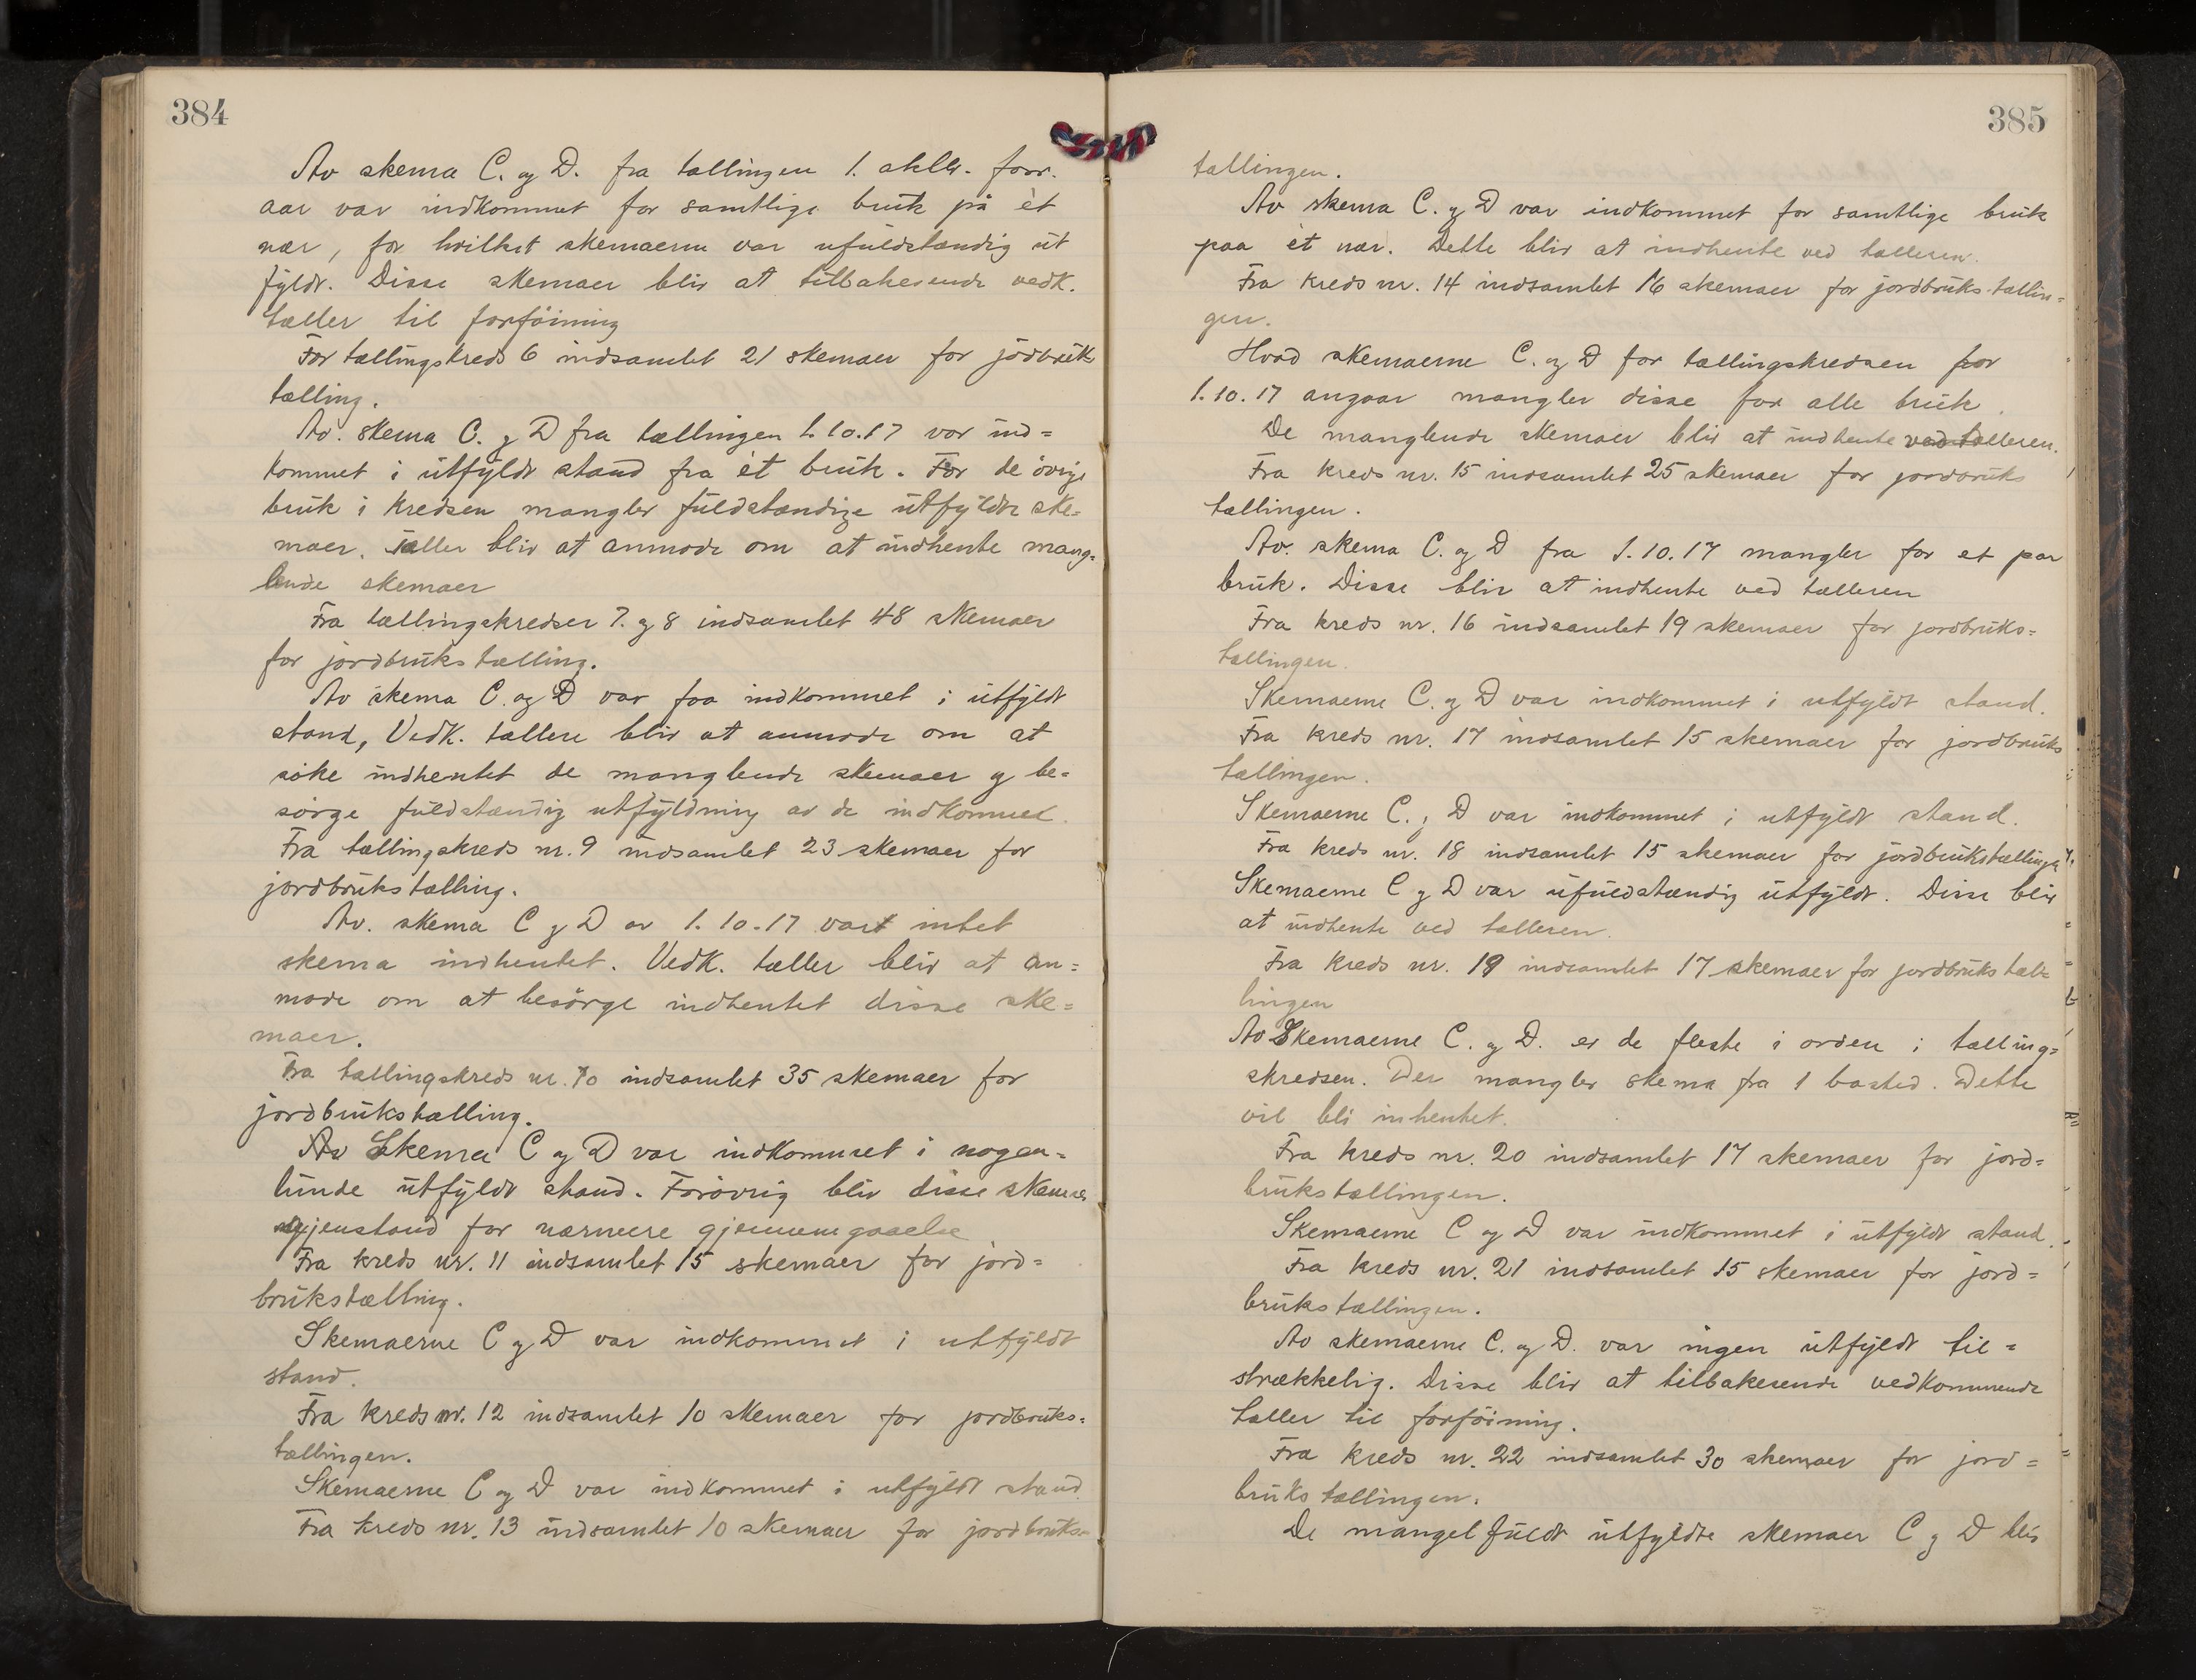 384
Av skema C. og D. fra tællingen 1. oktbr. forr.
aar var indkommet for samtlige bruk på ét
nær, for hvilket skemaerne var ufuldstændig ut
fyldt. Disse skemaer blir at tilbakesende vedk.
tæller til forföining
For tællingskreds 6 indsamlet 21 skemaer for jordbruk
tælling.
Av. skema C. og D fra tællingen 1.10.17 var ind=
kommet i utfyldt stand fra ét bruk. For de övrige
bruk i kredsen mangler fuldstændige utfyldte ske=
maer. Tæller blir at anmode om at indhente mang=
lende skemaer
Fra tællingskredser 7. og 8 indsamlet 48 skemaer
for jordbrukstælling.
Av skema C. og D var faa indkommet i utfyldt
stand, Vedk. tællere blir at anmode om at
söke indhentet de manglende skemaer og be=
sörge fuldstændig utfyldning av de indkomne.
Fra tællingskreds nr. 9 indsamlet 23 skemaer for
jordbrukstælling.
Av. skema C og D av 1.10.17 var intet
skema indhentet. Vedk. tæller blir at an=
mode om at besörge indhentet disse ske=
maer.
Fra tællingskreds nr. 10 indsamlet 35 skemaer for
jordbrukstælling.
Av Skema C og D var indkommet i nogen=
lunde utfyldt stand. Forövrig blir disse skemaer
gjenstand for nærmere gjennemgaaelse
Fra kreds nr. 11 indsamlet 15 skemaer for jord=
brukstælling.
Skemaerne C og D var indkommet i utfyldt
stand.
Fra kreds nr. 12 indsamlet 10 skemaer for jordbruks=
tællingen.
Skemaerne C og D var indkommet i utfyldt stand.
Fra kreds nr. 13 indsamlet 10 skemaer for jordbruks=
385
tællingen.
Av skema C. og D var indkommet for samtlige bruk
paa ét nær. Dette blir at indhente ved tælleren.
Fra kreds nr. 14 indsamlet 16 skemaer for jordbruks-tællin=
gen.
Hvad skemaerne C. og D for tællingskredsen for
1.10.17 angaar mangler disse for alle bruk.
De manglende skemaer blir at indhente ved tælleren.
Fra kreds nr. 15 indsamlet 25 skemaer for jordbruks
tællingen.
Av. skema C. og D fra 1.10.17 mangler for et par
bruk. Disse blir at indhente ved tælleren
Fra kreds nr. 16 indsamlet 19 skemaer for jordbruks=
tællingen.
Skemaerne C. og D var indkommet i utfyldt stand.
Fra kreds nr. 17 indsamlet 15 skemaer for jordbruks
tællingen.
Skemaerne C. og D var indkommet i utfyldt stand.
Fra kreds nr. 18 indsamlet 15 skemaer for jordbrukstællingen.
Skemaerne C og D var ufuldstændig utfyldt. Disse blir
at indhente ved tælleren.
Fra kreds nr. 19 indsamlet 17 skemaer for jordbrukstæl=
lingen
Av Skemaerne C. og D. er de fleste i orden i tælling=
skredsen. Der mangler skema fra 1 bosted. Dette
vil bli inhentet.
Fra kreds nr. 20 indsamlet 17 skemaer for jord=
brukstællingen.
Skemaerne C og D var indkommet i utfyldt stand.
Fra kreds nr. 21 indsamlet 15 skemaer for jord=
brukstællingen.
Av skemaerne C. og D. var ingen utfyldt til=
strækkelig. Disse blir at tilbakesende vedkommende
tæller til forföining.
Fra kreds nr. 22 indsamlet 30 skemaer for jord=
brukstællingen.
De mangelfuldt utfyldte skemaer C og D blir